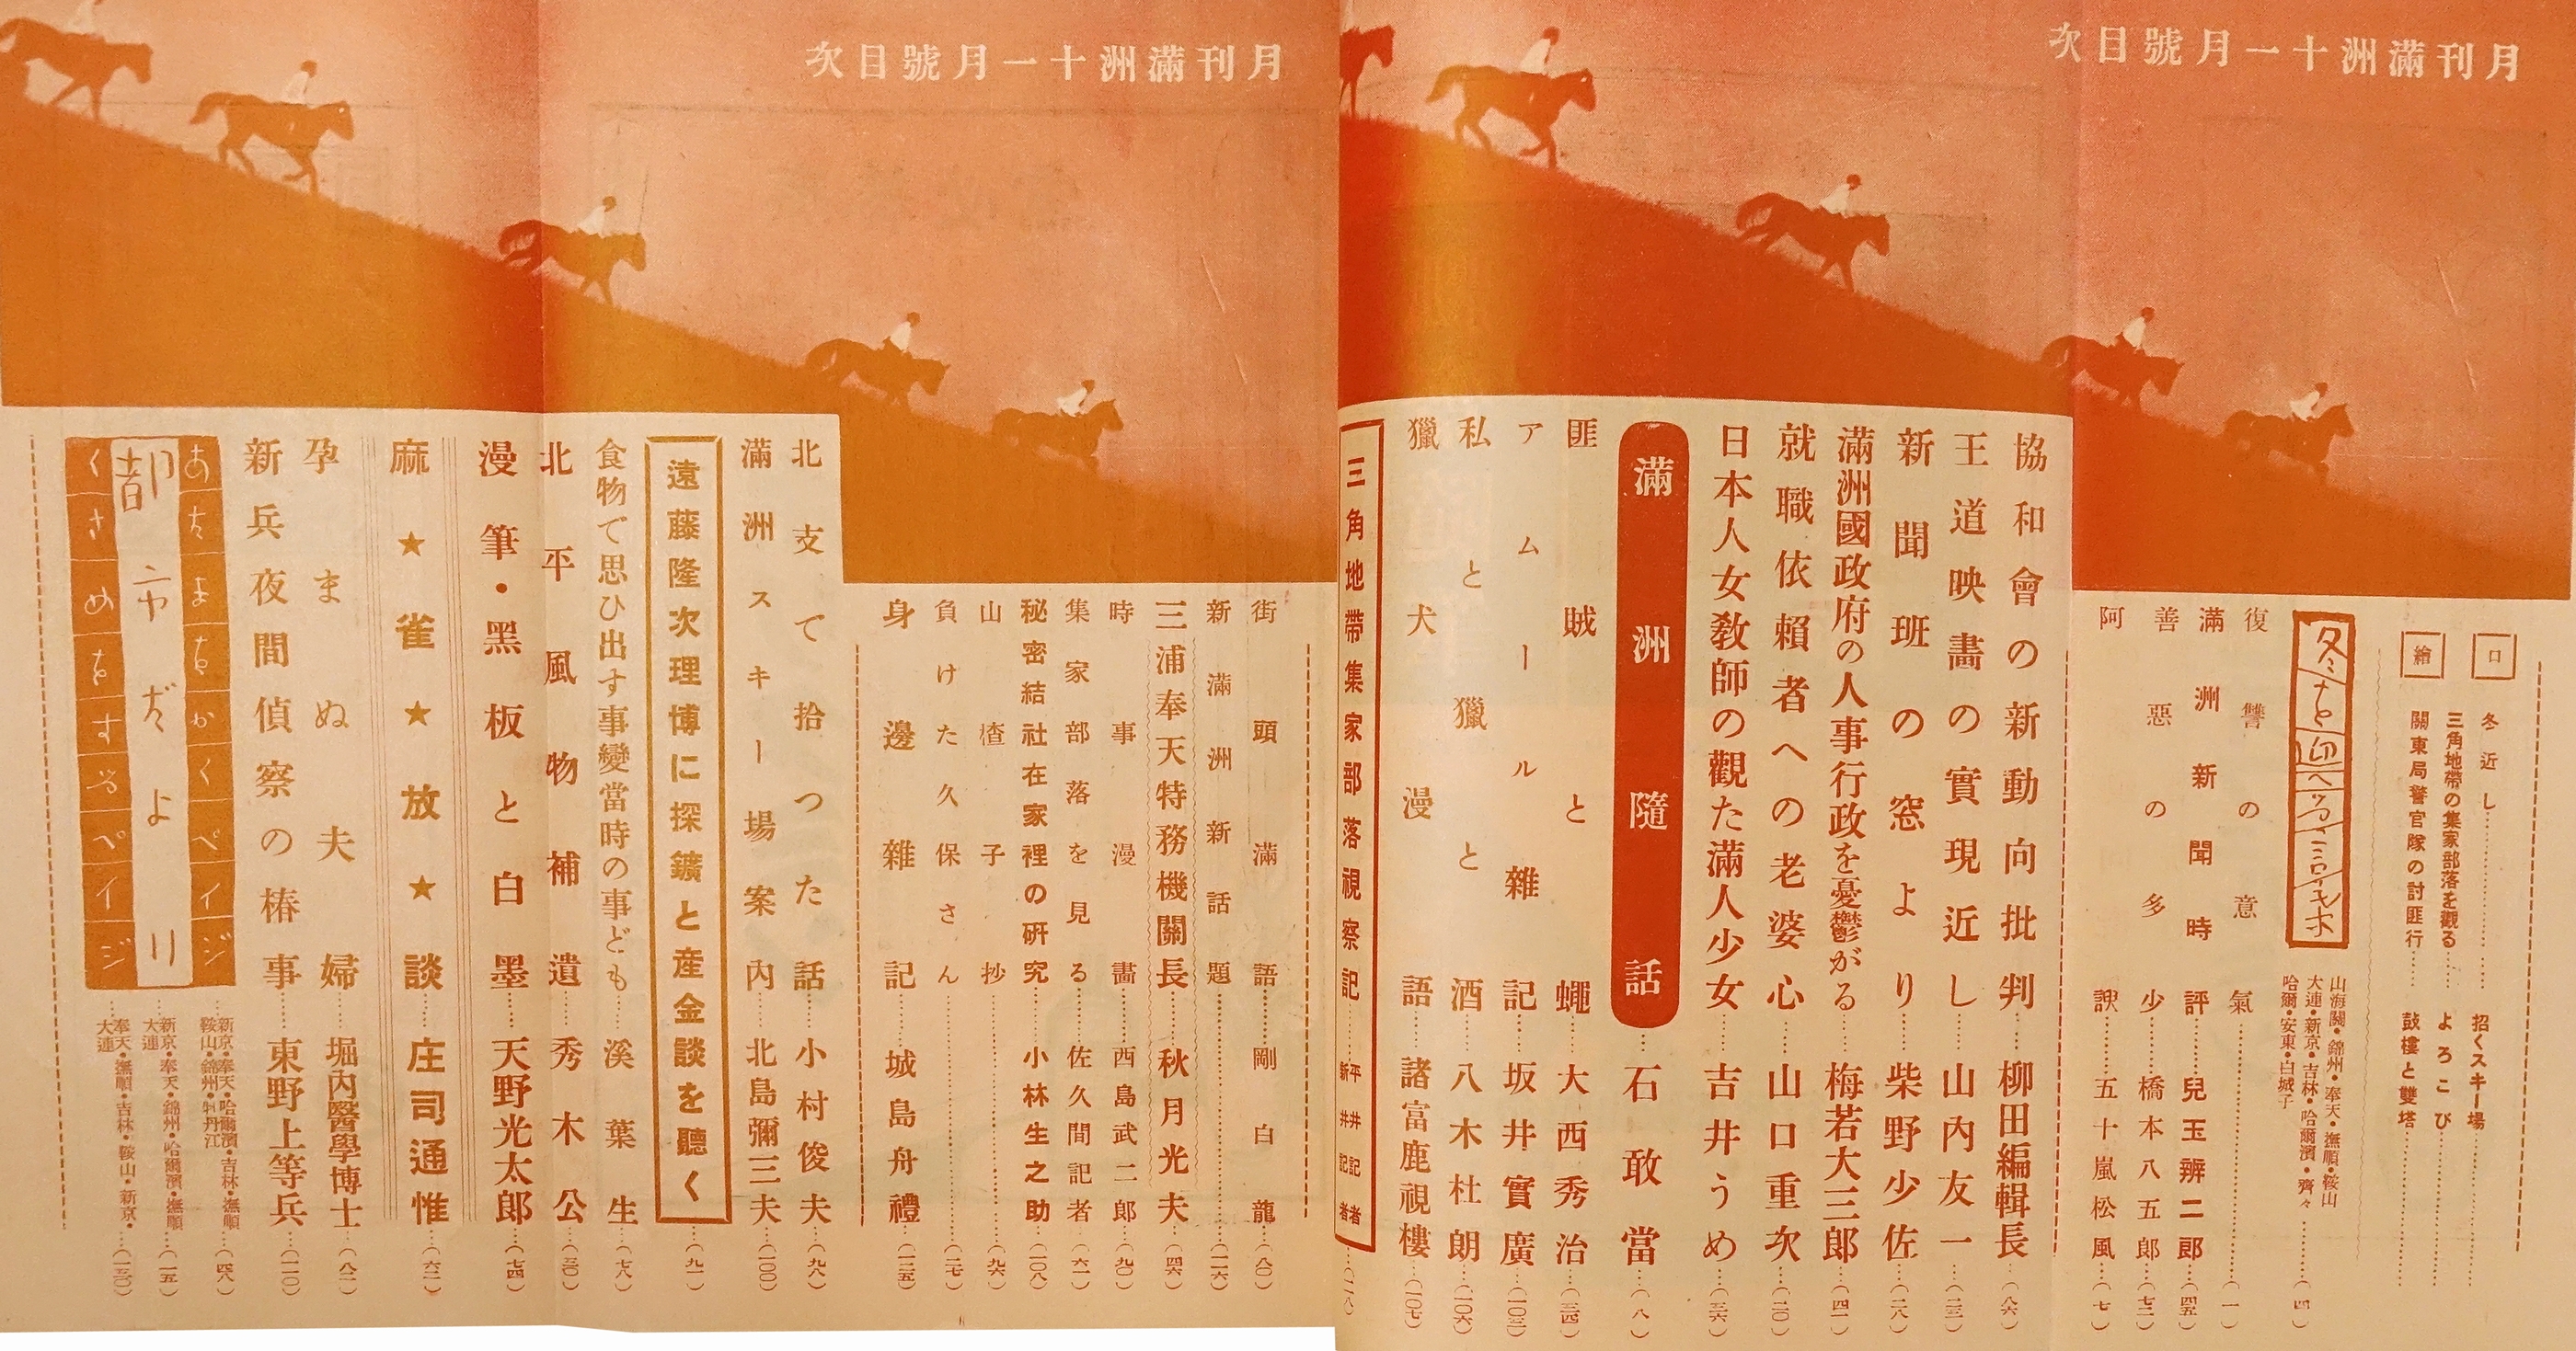 月刊滿洲十一月號目次
口繪
冬近し……………招くスキー場……………
三角地帶の集家部落を觀る……よろこび……………
關東局警官隊の討匪行……鼓樓と雙塔……………
冬を迎へる言葉
山海關・錦州・奉天・撫順・鞍山
大連・新京・吉林・哈爾濱・齊々
哈爾・安東・白城子……………(四)
復讐の意氣……………(一)
滿洲新聞時評……兒玉辨二郎…(四五)
善惡の多少……橋本八五郎…(七二)
阿諛……五十嵐松風…(七)
協和會の新動向批判……柳田編輯長…(八六)
王道映畫の實現近し……山内友一…(二三)
新聞班の窓より……柴野少佐…(二八)
滿洲國政府の人事行政を憂鬱がる……梅若大三郎…(四一)
就職依賴者への老婆心……山口重次…(二〇)
日本人女敎師の觀た滿人少女……吉井うめ…(三六)
滿洲隨話……石敢當…(八)
匪賊と蠅……大西秀治…(三四)
アムール雜記……坂井實廣…(一〇三)
私と獵と酒……八木杜朗…(一〇六)
獵犬漫語……諸富鹿視樓…(一〇七)
三角地帶集家部落視察記……平井記者 新井記者…(一一八)
月刊滿洲十一月號目次
街頭滿語……剛白龍…(八〇)
新滿洲新話題……………(一一六)
三浦奉天特務機關長……秋月光夫…(四六)
時事漫畫……西島武二郎…(九〇)
集家部落を見る……佐久間記者…(六一)
秘密結社在家裡の硏究……小林生之助…(一〇八)
山楂子抄……………(九六)
負けた久保さん……………(二七)
身邊雜記……城島舟禮…(一二五)
北支で拾つた話……小村俊夫…(九八)
滿洲スキー場案內……北島彌三夫…(一〇〇)
遠藤隆次理博に探鑛と産金談を聽く…(九一)
食物で思ひ出す事變當時の事ども……溪葉生…(七八)
北平風物補遺……秀木公…(三〇)
漫筆・黑板と白墨……天野光太郎…(七四)
麻★雀★放★談……庄司通惟…(六二)
孕まぬ夫婦……堀內醫學博士…(八二)
新兵夜間偵察の椿事……東野上等兵…(一一〇)
あたまをかくペイジ……新京・奉天・哈爾濱・吉林・撫順
鞍山・錦州・牡丹江……(四八)
都市だより……新京・奉天・錦州・哈爾濱・撫順
大連……(一五)
くさめをするペイジ……奉天・撫順・吉林・鞍山・新京・
大連……(一三〇)